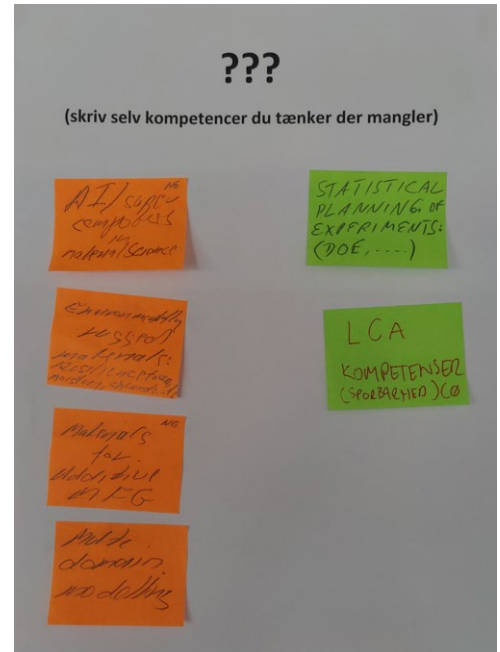 ???
(skriv selv kompetencer du tænker der mangler)
NG
AI/super
computers
in
material science
Environmentally
materials:
NG
Materials
for
Additive
MFG
domain
modelling
STATISTICAL
PLANNING OF
EXPERIMENTS:
(DOE, ....)
LCA
KOMPETENSER
(SPORBARHED) CØ